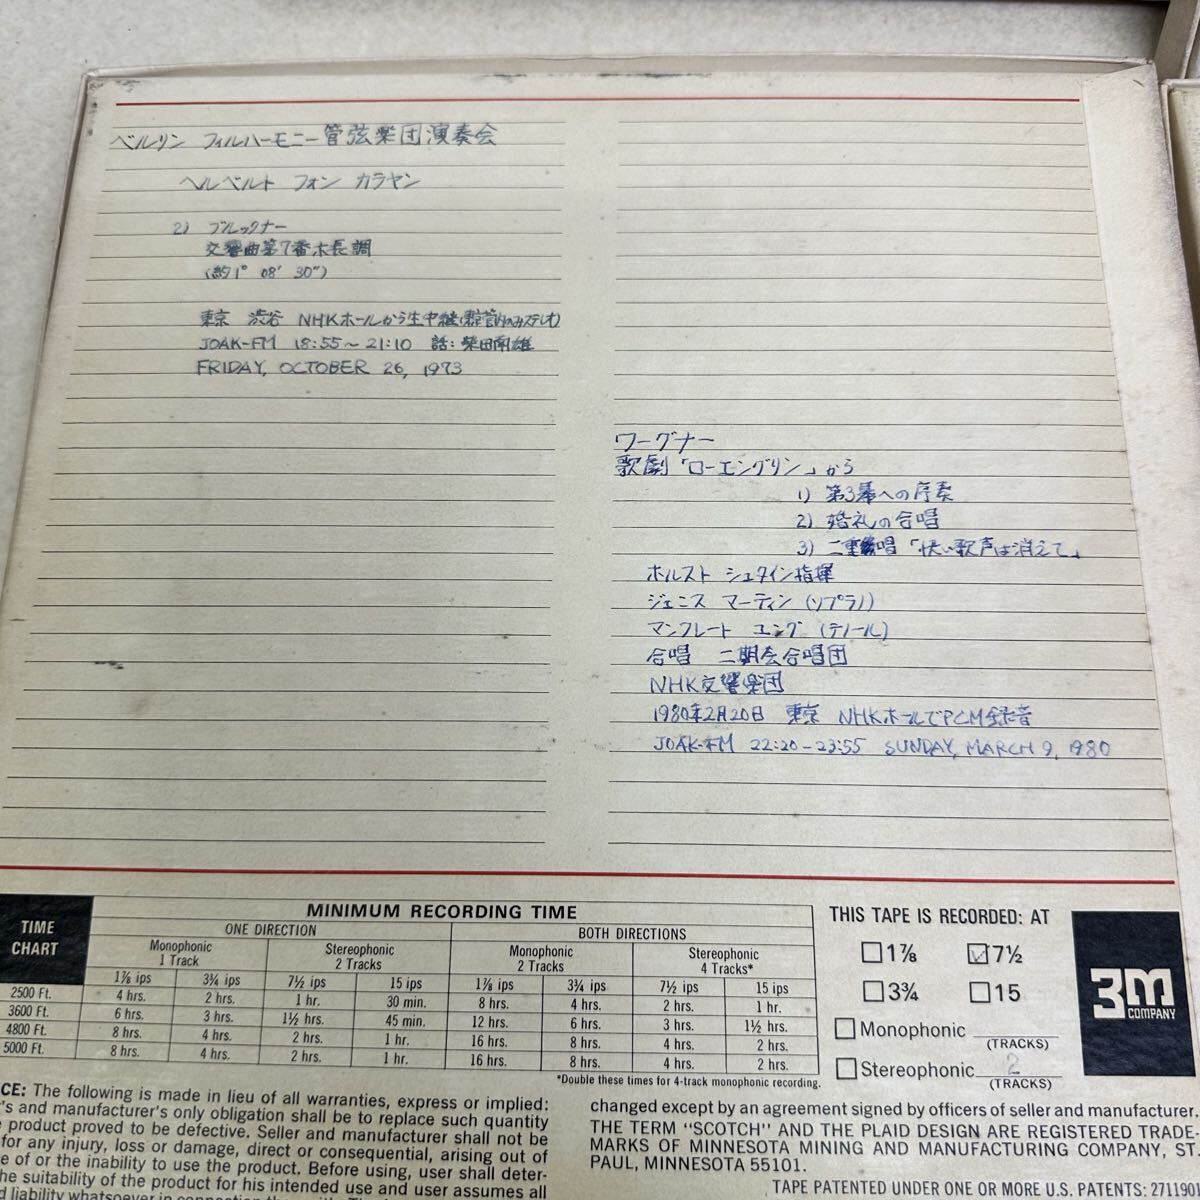 ベルリン フィルハーモニー管弦楽団演奏会
ヘルベルト フォン カラヤン
2) ブルックナー
交響曲第7番ホ長調
(約1° 08' 30")
東京 渋谷 NHKホールから生中継
JOAK-FM 18:55〜21:10 話:柴田南雄
FRIDAY, OCTOBER 26, 1973
ワーグナー
歌劇「ローエングリン」から
1) 第3幕への序奏
2) 婚礼の合唱
3) 二重唱「快い歌声は消えて」
ホルスト シュタイン指揮
ジェニス マーティン(ソプラノ)
マンフレート ユング(テノール)
合唱 二期会合唱団
NHK交響楽団
1980年2月20日 東京 NHKホールでPCM録音
JOAK-FM 22:20-23:55 SUNDAY, MARCH 9, 1980
TIME CHART
MINIMUM RECORDING TIME
ONE DIRECTION BOTH DIRECTIONS
Monophonic 1 Track Stereophonic 2 Tracks Monophonic 2 Tracks Stereophonic 4 Tracks*
1⅞ ips 3¾ ips 7½ ips 15 ips 1⅞ ips 3¾ ips 7½ ips 15 ips
2500 Ft. 4 hrs. 2 hrs. 1 hr. 30 min. 8 hrs. 4 hrs. 2 hrs. 1 hr.
3600 Ft. 6 hrs. 3 hrs. 1½ hrs. 45 min. 12 hrs. 6 hrs. 3 hrs. 1½ hrs.
4800 Ft. 8 hrs. 4 hrs. 2 hrs. 1 hr. 16 hrs. 8 hrs. 4 hrs. 2 hrs.
5000 Ft. 8 hrs. 4 hrs. 2 hrs. 1 hr. 16 hrs. 8 hrs. 4 hrs. 2 hrs.
*Double these times for 4-track monophonic recording.
THIS TAPE IS RECORDED: AT
1⅞ 7½
3¾ 15
Monophonic
(TRACKS)
Stereophonic 2
(TRACKS)
3M
COMPANY
CE: The following is made in lieu of all warranties, express or implied:
's and manufacturer's only obligation shall be to replace such quantity
product proved to be defective. Seller and manufacturer shall not be
for any injury, loss or damage, direct or consequential, arising out of
e of or the inability to use the product. Before using, user shall deter-
he suitability of the product for his intended use and user assumes all
liability whatsoever in connection
changed except by an agreement signed by officers of seller and manufacturer.
THE TERM "SCOTCH" AND THE PLAID DESIGN ARE REGISTERED TRADE-
MARKS OF MINNESOTA MINING AND MANUFACTURING COMPANY, ST.
PAUL, MINNESOTA 55101.
TAPE PATENTED UNDER ONE OR MORE U.S. PATENTS: 2711901